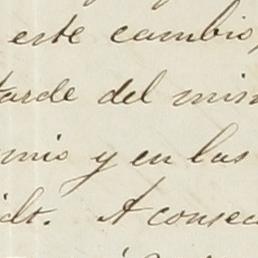 este cambio,
tarde del mism
mio y en las
ido. A consec